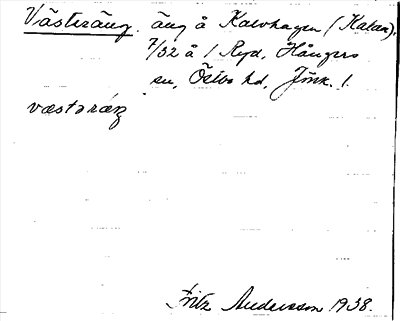 Västeräng. äng å Kalvhagen (Katan),
7/32 å 1 Ryd, Hångers
sn, Östbo hd, Jönk. l.
væstəräŋ
Fritz Andersson 1938.